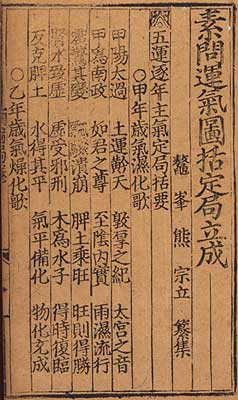 素問運氣圖括定局立成
鼇峯熊宗立纂集
五運逐年主氣定局括要
○甲年歲氣濕化歌
甲陽太過 土運敷天 敦阜之紀 太宮之音
甲爲南政 如君之尊 至陰內實 雨濕流行
震驚其變 潰崩 脾土乘旺 旺則得勝
腎水致虛 虛受邪刑 木爲水子 得時復臨
反克脾土 水得其平 氣平備化 物化充成
○乙年歲氣燥化歌